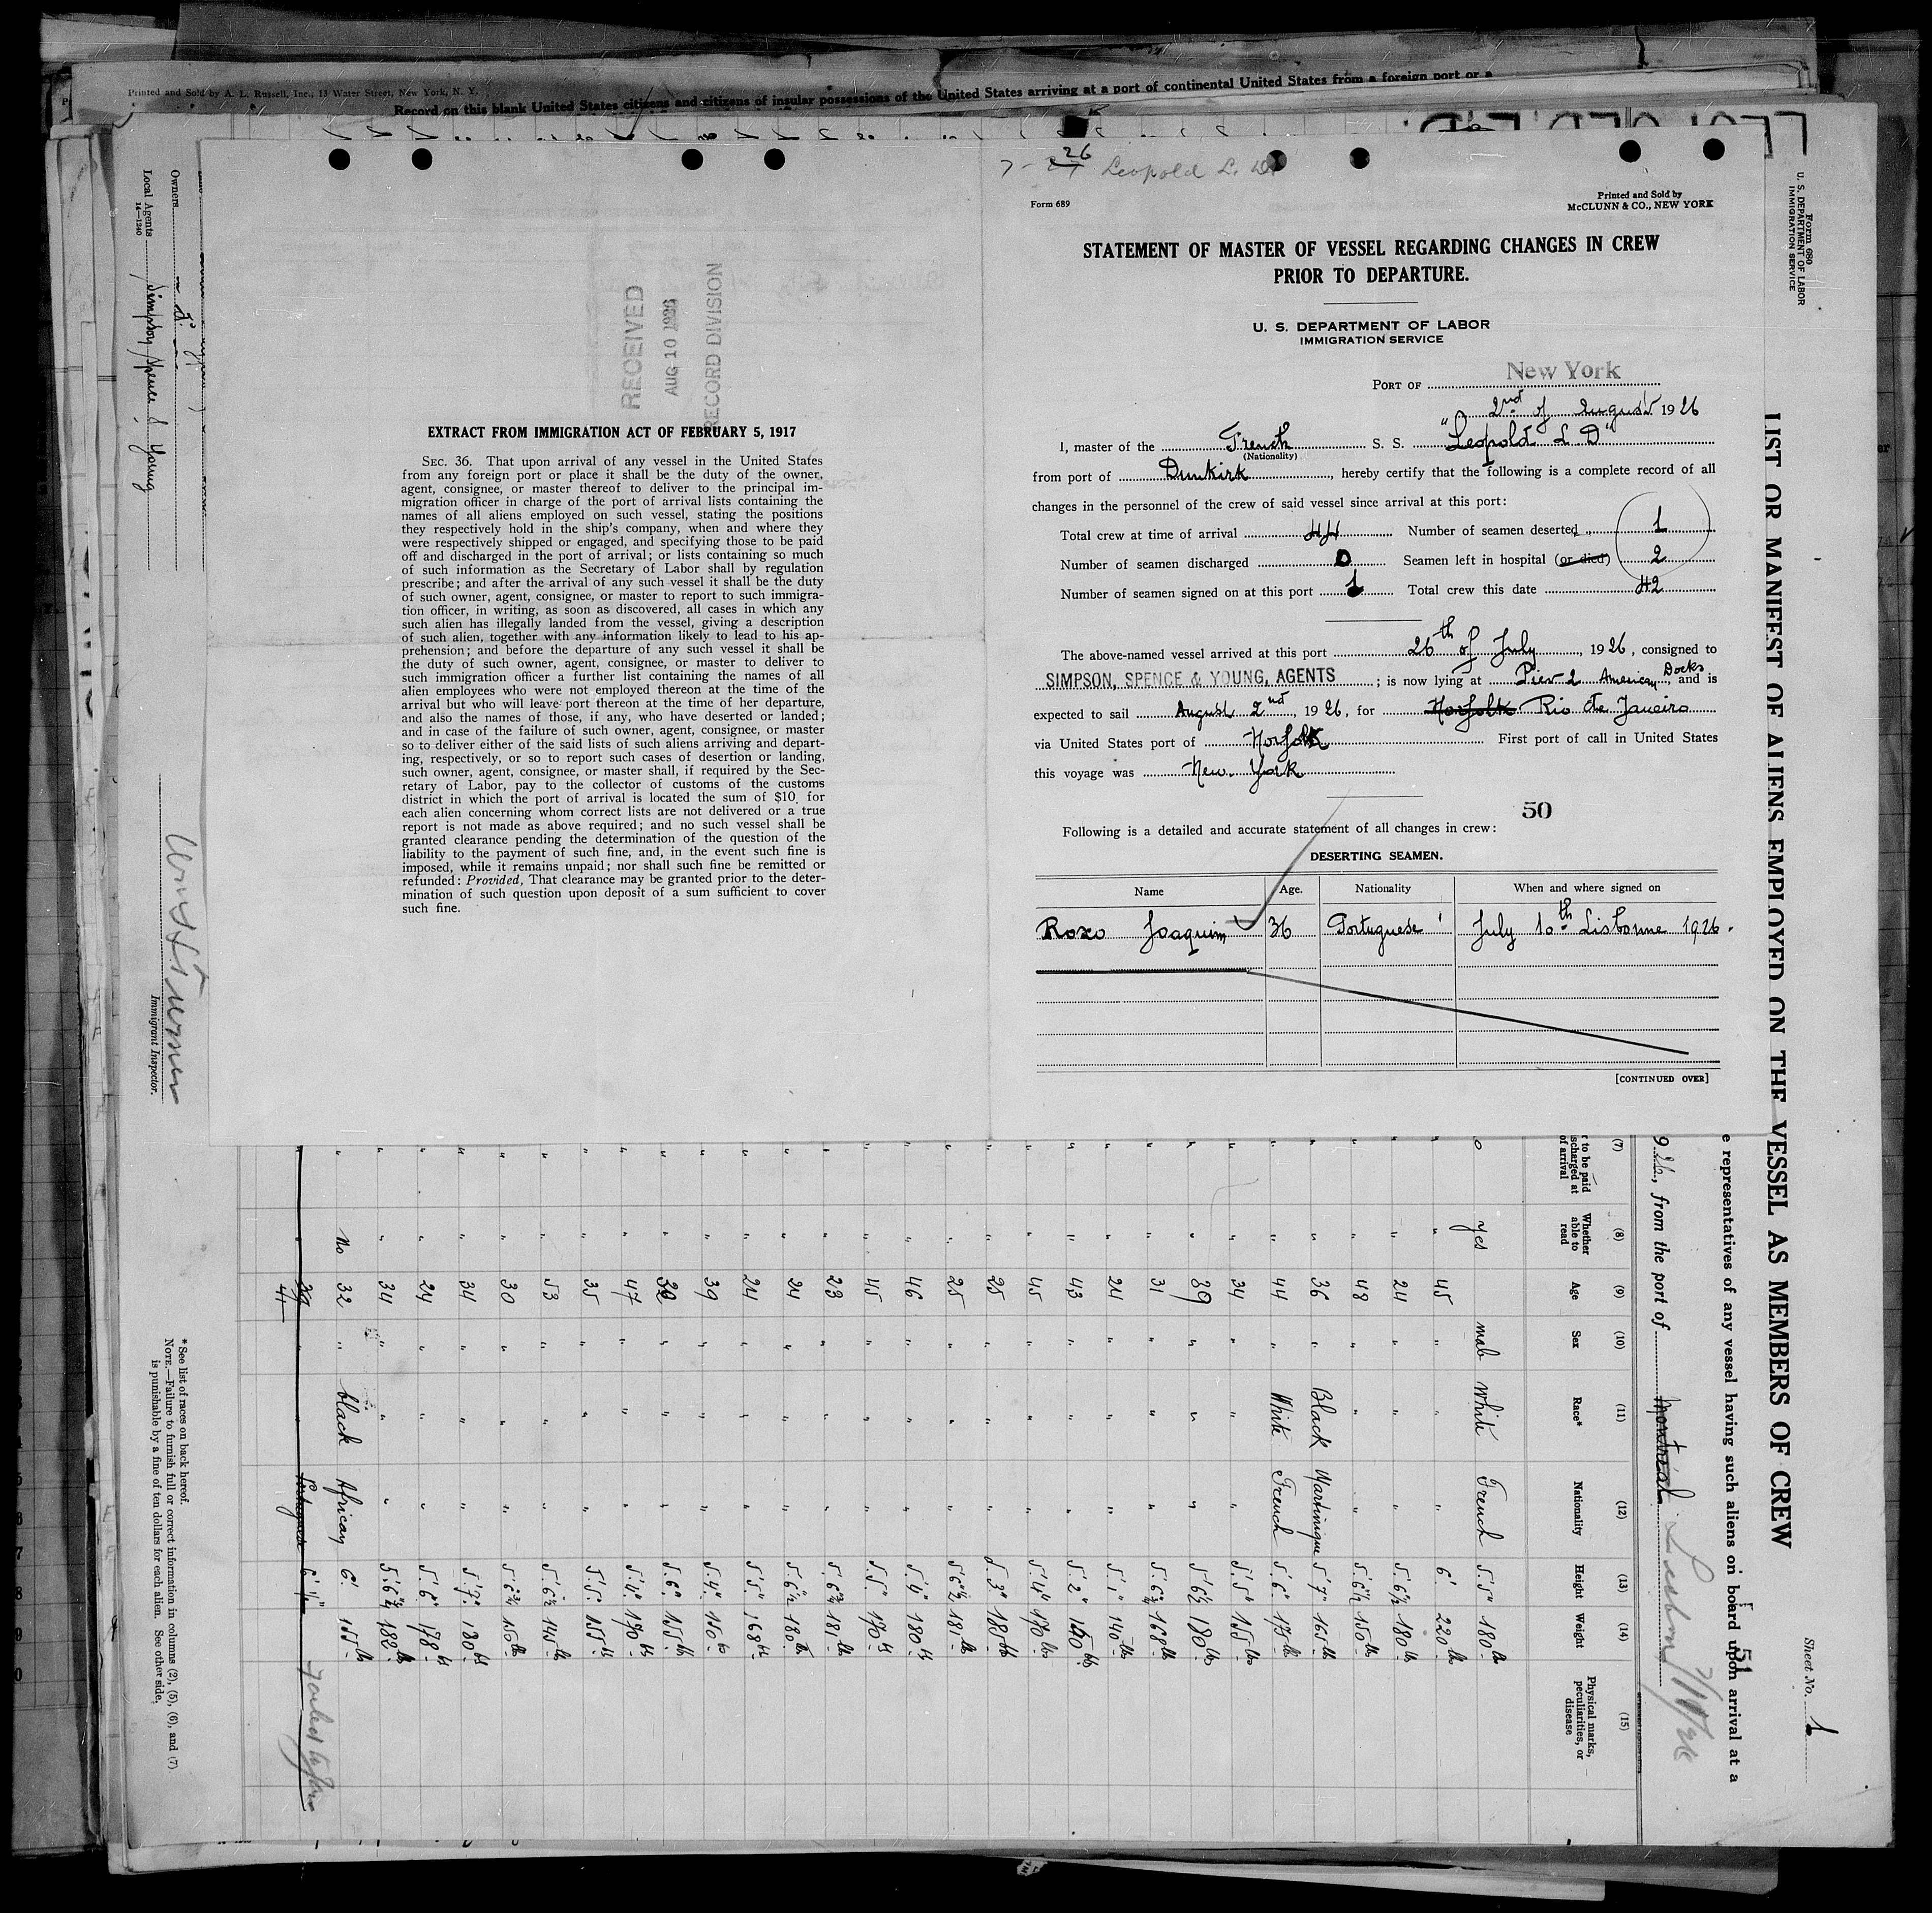 Printed and Sold by A. L. Russell, Inc., 13 Water Street, New York, N. Y.
Record on this blank United States citizens and citizens of insular possessions of the United States arriving at a port of continental United States from a foreign port or a
Owners
Local Agents Simpson Spence & Young
14—1240
Immigrant Inspector.
* See list of races on back hereof.
NOTE.—Failure to furnish full or correct information in columns (2), (5), (6), and (7)
is punishable by a fine of ten dollars for each alien. See other side.
RECEIVED
AUG 10 1926
RECORD DIVISION
EXTRACT FROM IMMIGRATION ACT OF FEBRUARY 5, 1917
SEC. 36. That upon arrival of any vessel in the United States
from any foreign port or place it shall be the duty of the owner,
agent, consignee, or master thereof to deliver to the principal im-
migration officer in charge of the port of arrival lists containing the
names of all aliens employed on such vessel, stating the positions
they respectively hold in the ship's company, when and where they
were respectively shipped or engaged, and specifying those to be paid
off and discharged in the port of arrival; or lists containing so much
of such information as the Secretary of Labor shall by regulation
prescribe; and after the arrival of any such vessel it shall be the duty
of such owner, agent, consignee, or master to report to such immigra-
tion officer, in writing, as soon as discovered, all cases in which any
such alien has illegally landed from the vessel, giving a description
of such alien, together with any information likely to lead to his ap-
prehension; and before the departure of any such vessel it shall be
the duty of such owner, agent, consignee, or master to deliver to
such immigration officer a further list containing the names of all
alien employees who were not employed thereon at the time of the
arrival but who will leave port thereon at the time of her departure,
and also the names of those, if any, who have deserted or landed;
and in case of the failure of such owner, agent, consignee, or master
so to deliver either of the said lists of such aliens arriving and depart-
ing, respectively, or so to report such cases of desertion or landing,
such owner, agent, consignee, or master shall, if required by the Sec-
retary of Labor, pay to the collector of customs of the customs
district in which the port of arrival is located the sum of $10 for
each alien concerning whom correct lists are not delivered or a true
report is not made as above required; and no such vessel shall be
granted clearance pending the determination of the question of the
liability to the payment of such fine, and, in the event such fine is
imposed, while it remains unpaid; nor shall such fine be remitted or
refunded: Provided, That clearance may be granted prior to the deter-
mination of such question upon deposit of a sum sufficient to cover
such fine.
26
7-27 Leopold L. D.
Form 689
Printed and Sold by
McCLUNN & CO., NEW YORK
STATEMENT OF MASTER OF VESSEL REGARDING CHANGES IN CREW
PRIOR TO DEPARTURE.
U. S. DEPARTMENT OF LABOR
IMMIGRATION SERVICE
PORT OF New York
2nd of August 1926
I, master of the French S. S. "Leopold L D"
(Nationality)
from port of Dunkirk, hereby certify that the following is a complete record of all
changes in the personnel of the crew of said vessel since arrival at this port:
Total crew at time of arrival 44 Number of seamen deserted 1
Number of seamen discharged 0 Seamen left in hospital (or died) 2
Number of seamen signed on at this port 1 Total crew this date 42
The above-named vessel arrived at this port 26th of July, 1926, consigned to
SIMPSON, SPENCE & YOUNG, AGENTS; is now lying at Pier 2 American Docks, and is
expected to sail August 2nd, 1926, for Norfolk Rio de Janeiro
via United States port of Norfolk First port of call in United States
this voyage was New York
50
Following is a detailed and accurate statement of all changes in crew:
DESERTING SEAMEN.
Name Age. Nationality When and where signed on
Roxo Joaquim 36 Portuguese July 10th Lisbonne 1926.
[CONTINUED OVER]
Form 680
U. S. DEPARTMENT OF LABOR
IMMIGRATION SERVICE
LIST OR MANIFEST OF ALIENS EMPLOYED ON THE VESSEL AS MEMBERS OF CREW
Sheet No. 1
e representatives of any vessel having such aliens on board upon arrival at a
51
926, from the port of Montreal Lisbon 7/11/26
(7) (8) (9) (10) (11) (12) (13) (14) (15)
r to be paid
scharged at
of arrival
Whether
able to
read
Age
Sex
Race*
Nationality
Height
Weight
Physical marks,
peculiarities, or
disease
yes male White French 5'.5" 180 lb
" 45 " " " 6'. 220 lb
" 24 " " " 5'.6½ 180 lb
" 48 " " " 5'.6½ 150 lb
" 36 " Black Martinique 5'.7" 165 lb
" 44 " White French 5'.6" 175 lb
" 34 " " " 5'.5" 155 lb
" 39 " " " 5'6½ 180 lbs
" 31 " " " 168 lb
" 24 " " " 5'.1" 140 lb
" 43 " " " 5'.2" 160 lbs
" 45 " " " 5'.4" 170 lbs
" 25 " " " 5'.3" 185 lbs
" 25 " " " 181 lb
" 46 " " " 5'.4" 180 lb
" 45 " " " 5'.5" 170 lb
" 23 " " " 181 lb
" 24 " " " 5'.6½ 180 lb
" 24 " " " 5'.5" 168 lb
" 39 " " " 5'.4" 150
" " " " 5'.6" 155 lb
" 47 " " " 5'.4" 170 lb
" 35 " " " 5'.5" 155 lb
" 53 " " " 5'.6½ 145 lb
" 30 " " " 150 lb
" 34 " " " 5'.7" 180 lb
" 24 " " " 5'.6" 178 lb
" 34 " " " 182 lb
no 32 " black African 6'. 155 lb
" 39 " " Portuguese 6' 1½" Failed to Join
41